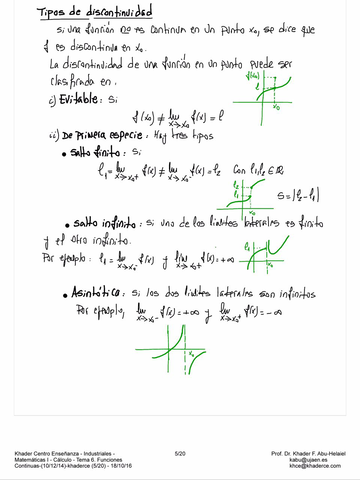 Tipos de discontinuidad
Si una función no es continua en un punto x₀, se dice que
f es discontinua en x₀.
La discontinuidad de una función en un punto puede ser
clasificada en:
i) Evitable: Si
f(x₀) ≠ lim x→x₀ f(x) = l
f(x₀)
l
x₀
ii) De primera especie: Hay tres tipos
• Salto finito: Si
l₁ = lim x→x₀⁺ f(x) ≠ lim x→x₀⁻ f(x) = l₂ Con l₁, l₂ ∈ ℝ
l₂
l₁
x₀
S = |l₂ - l₁|
• Salto infinito: Si uno de los límites laterales es finito
y el otro infinito.
Por ejemplo: l₁ = lim x→x₀⁻ f(x) y lim x→x₀⁺ f(x) = +∞
l₁
x₀
• Asintótica: Si los dos límites laterales son infinitos
Por ejemplo, lim x→x₀⁻ f(x) = +∞ y lim x→x₀⁺ f(x) = -∞
x₀
Khader Centro Enseñanza - Industriales -
Matemáticas I - Cálculo - Tema 6. Funciones
Continuas-(10/12/14)-khaderce (5/20) - 18/10/16
5/20
Prof. Dr. Khader F. Abu-Helaiel
kabu@ujaen.es
khoe@khaderce.com